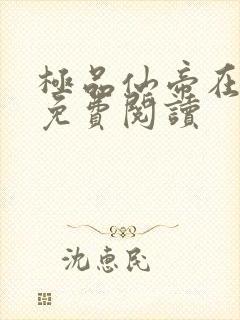 極品仙帝在
免費閱讀
沈惠民